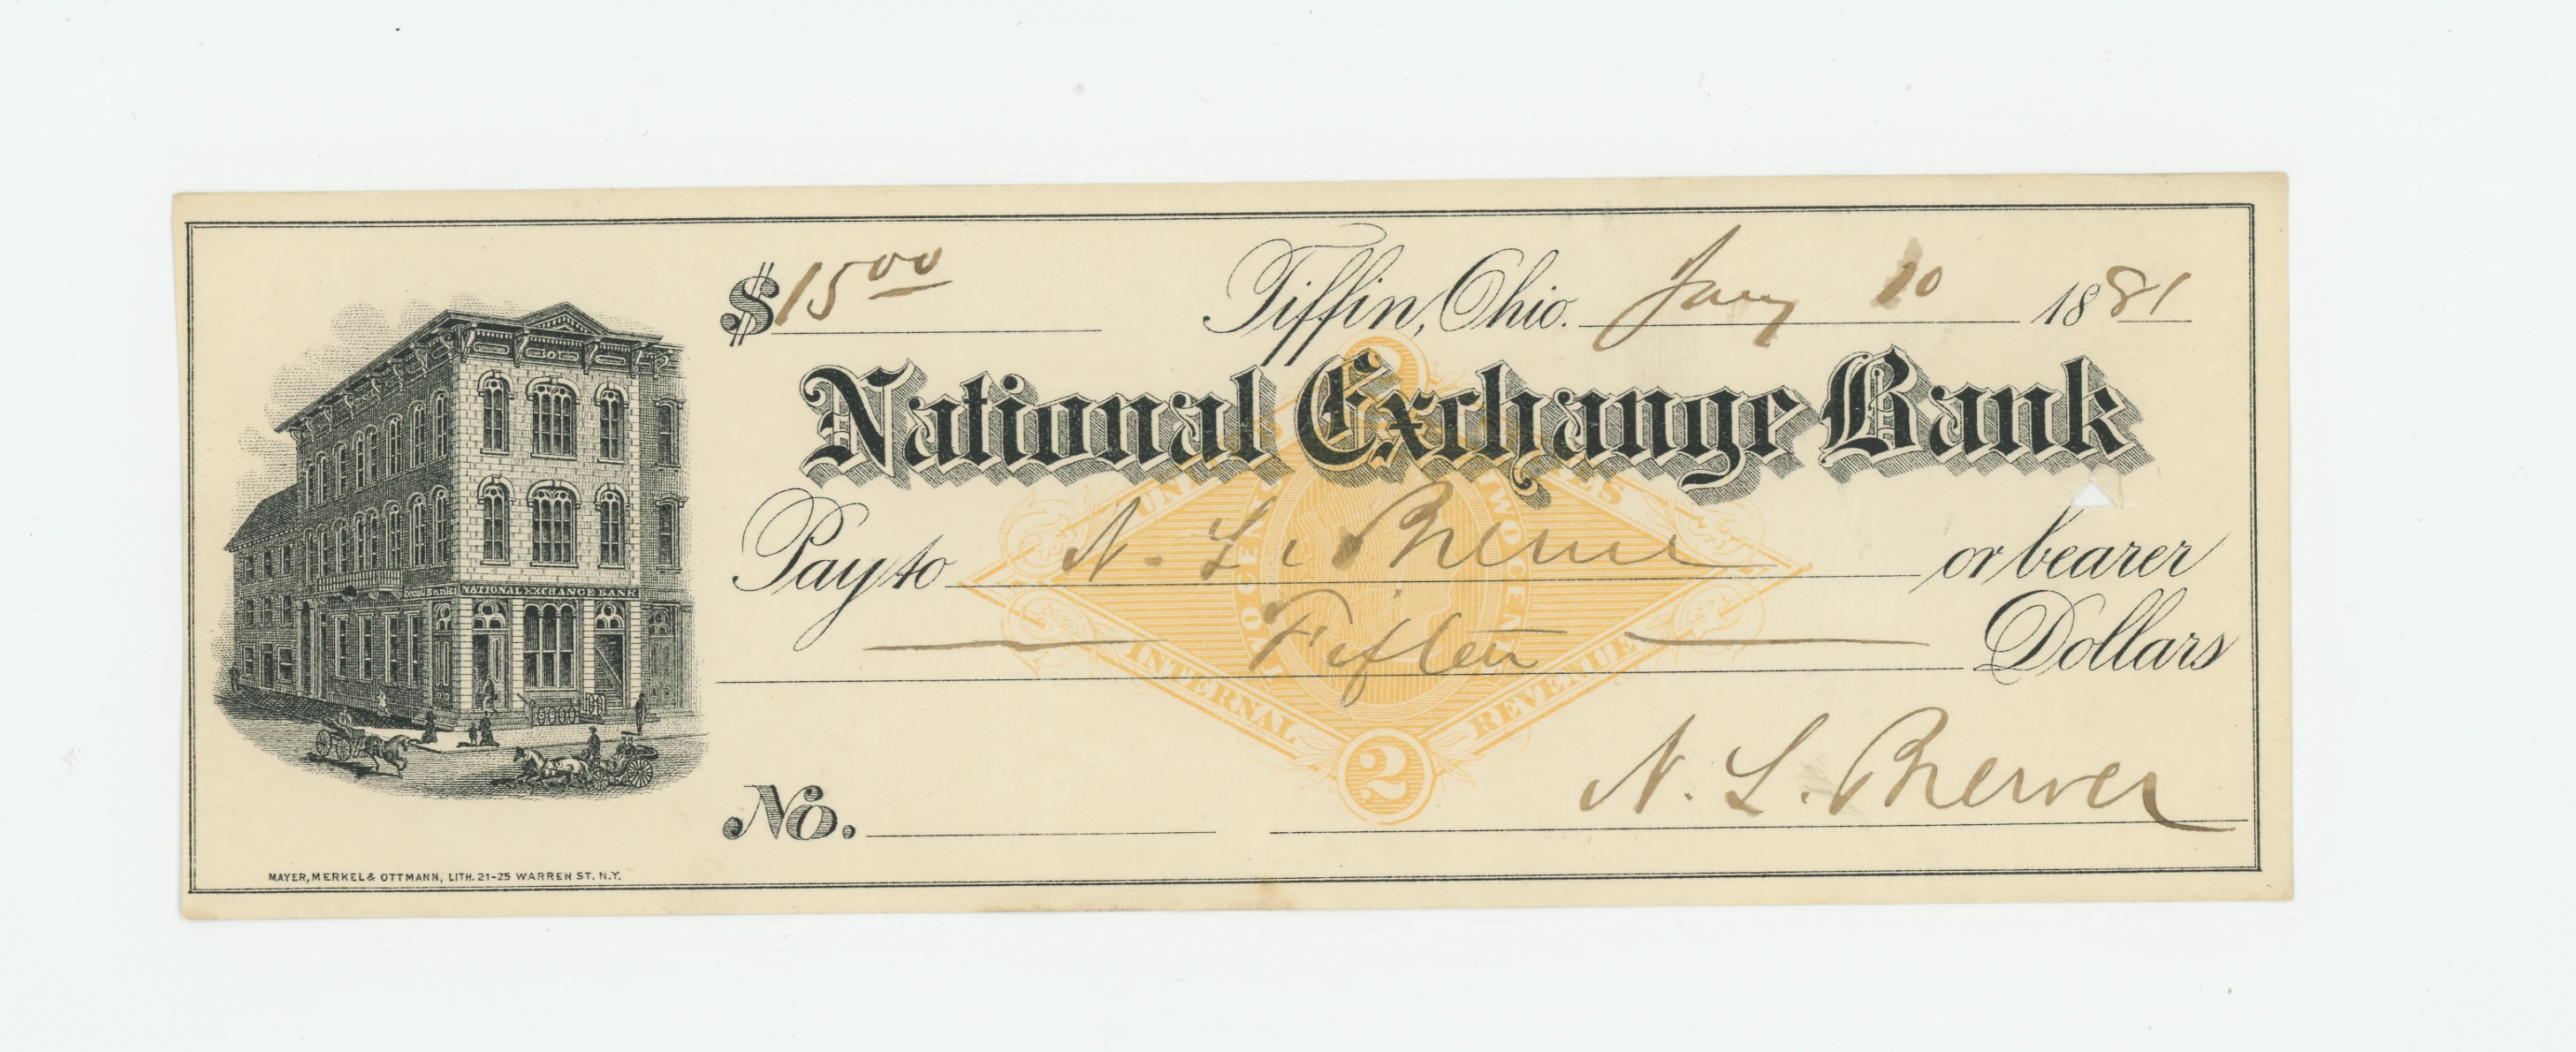 $ 15 00 Tiffin, Ohio. Jany 10 1881
National Exchange Bank
UNITED STATES
TWO CENTS TWO CENTS
Pay to N. L. Brewer or bearer
Fifteen Dollars
INTERNAL REVENUE
2
NATIONAL EXCHANGE BANK
No. N. L. Brewer
MAYER, MERKEL & OTTMANN, LITH. 21-25 WARREN ST. N.Y.